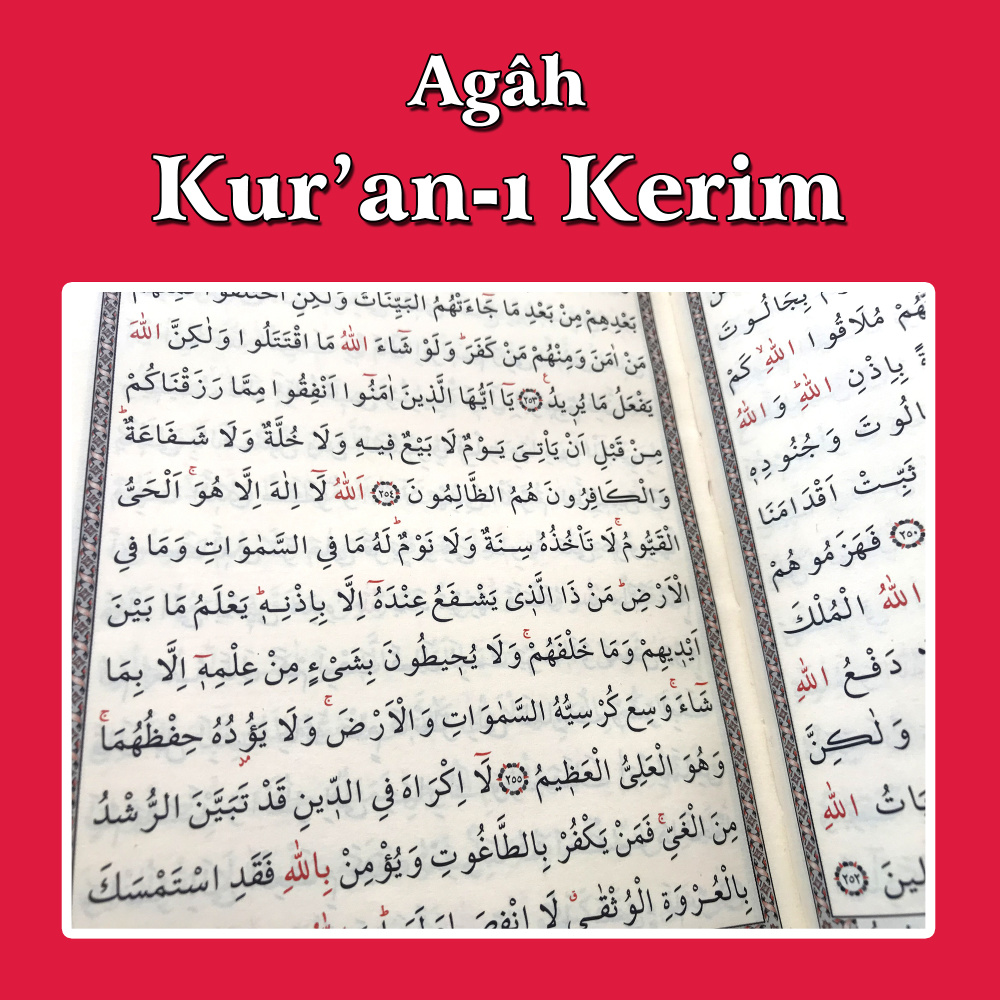 Agâh
Kur’an-ı Kerim
بَعْدِهِمْ مِنْ بَعْدِ مَا جَٓاءَتْهُمُ الْبَيِّنَاتُ وَلٰكِنِ اخْتَلَفُوا
مَنْ اٰمَنَ وَمِنْهُمْ مَنْ كَفَرَۜ وَلَوْ شَٓاءَ اللّٰهُ مَا اقْتَتَلُوا وَلٰكِنَّ اللّٰهَ
يَفْعَلُ مَا يُر۪يدُ۟ ﴿٢٥٣﴾ يَٓا اَيُّهَا الَّذ۪ينَ اٰمَنُٓوا اَنْفِقُوا مِمَّا رَزَقْنَاكُمْ
مِنْ قَبْلِ اَنْ يَأْتِيَ يَوْمٌ لَا بَيْعٌ ف۪يهِ وَلَا خُلَّةٌ وَلَا شَفَاعَةٌۜ
وَالْكَافِرُونَ هُمُ الظَّالِمُونَ ﴿٢٥٤﴾ اَللّٰهُ لَٓا اِلٰهَ اِلَّا هُوَۚ اَلْحَيُّ
الْقَيُّومُۚ لَا تَأْخُذُهُ سِنَةٌ وَلَا نَوْمٌۜ لَهُ مَا فِي السَّمٰوَاتِ وَمَا فِي
الْاَرْضِۜ مَنْ ذَا الَّذ۪ي يَشْفَعُ عِنْدَهُٓ اِلَّا بِاِذْنِه۪ۜ يَعْلَمُ مَا بَيْنَ
اَيْد۪يهِمْ وَمَا خَلْفَهُمْۚ وَلَا يُح۪يطُونَ بِشَيْءٍ مِنْ عِلْمِه۪ٓ اِلَّا بِمَا
شَٓاءَۚ وَسِعَ كُرْسِيُّهُ السَّمٰوَاتِ وَالْاَرْضَۚ وَلَا يَؤُ۫دُهُ حِفْظُهُمَاۚ
وَهُوَ الْعَلِيُّ الْعَظ۪يمُ ﴿٢٥٥﴾ لَٓا اِكْرَاهَ فِي الدّ۪ينِ قَدْ تَبَيَّنَ الرُّشْدُ
مِنَ الْغَيِّۚ فَمَنْ يَكْفُرْ بِالطَّاغُوتِ وَيُؤْمِنْ بِاللّٰهِ فَقَدِ اسْتَمْسَكَ
بِالْعُرْوَةِ الْوُثْقٰىۗ لَا انْفِصَامَ
بِجَالُوتَ
هُمْ مُلَاقُوا اللّٰهِۙ كَمْ
بِاِذْنِ اللّٰهِۜ وَاللّٰهُ
الُوتَ وَجُنُودِه۪
ثَبِّتْ اَقْدَامَنَا
﴿٢٥٠﴾ فَهَزَمُوهُمْ
اللّٰهُ الْمُلْكَ
دَفْعُ اللّٰهِ
وَلٰكِنَّ
اللّٰهِ
﴿٢٥٢﴾